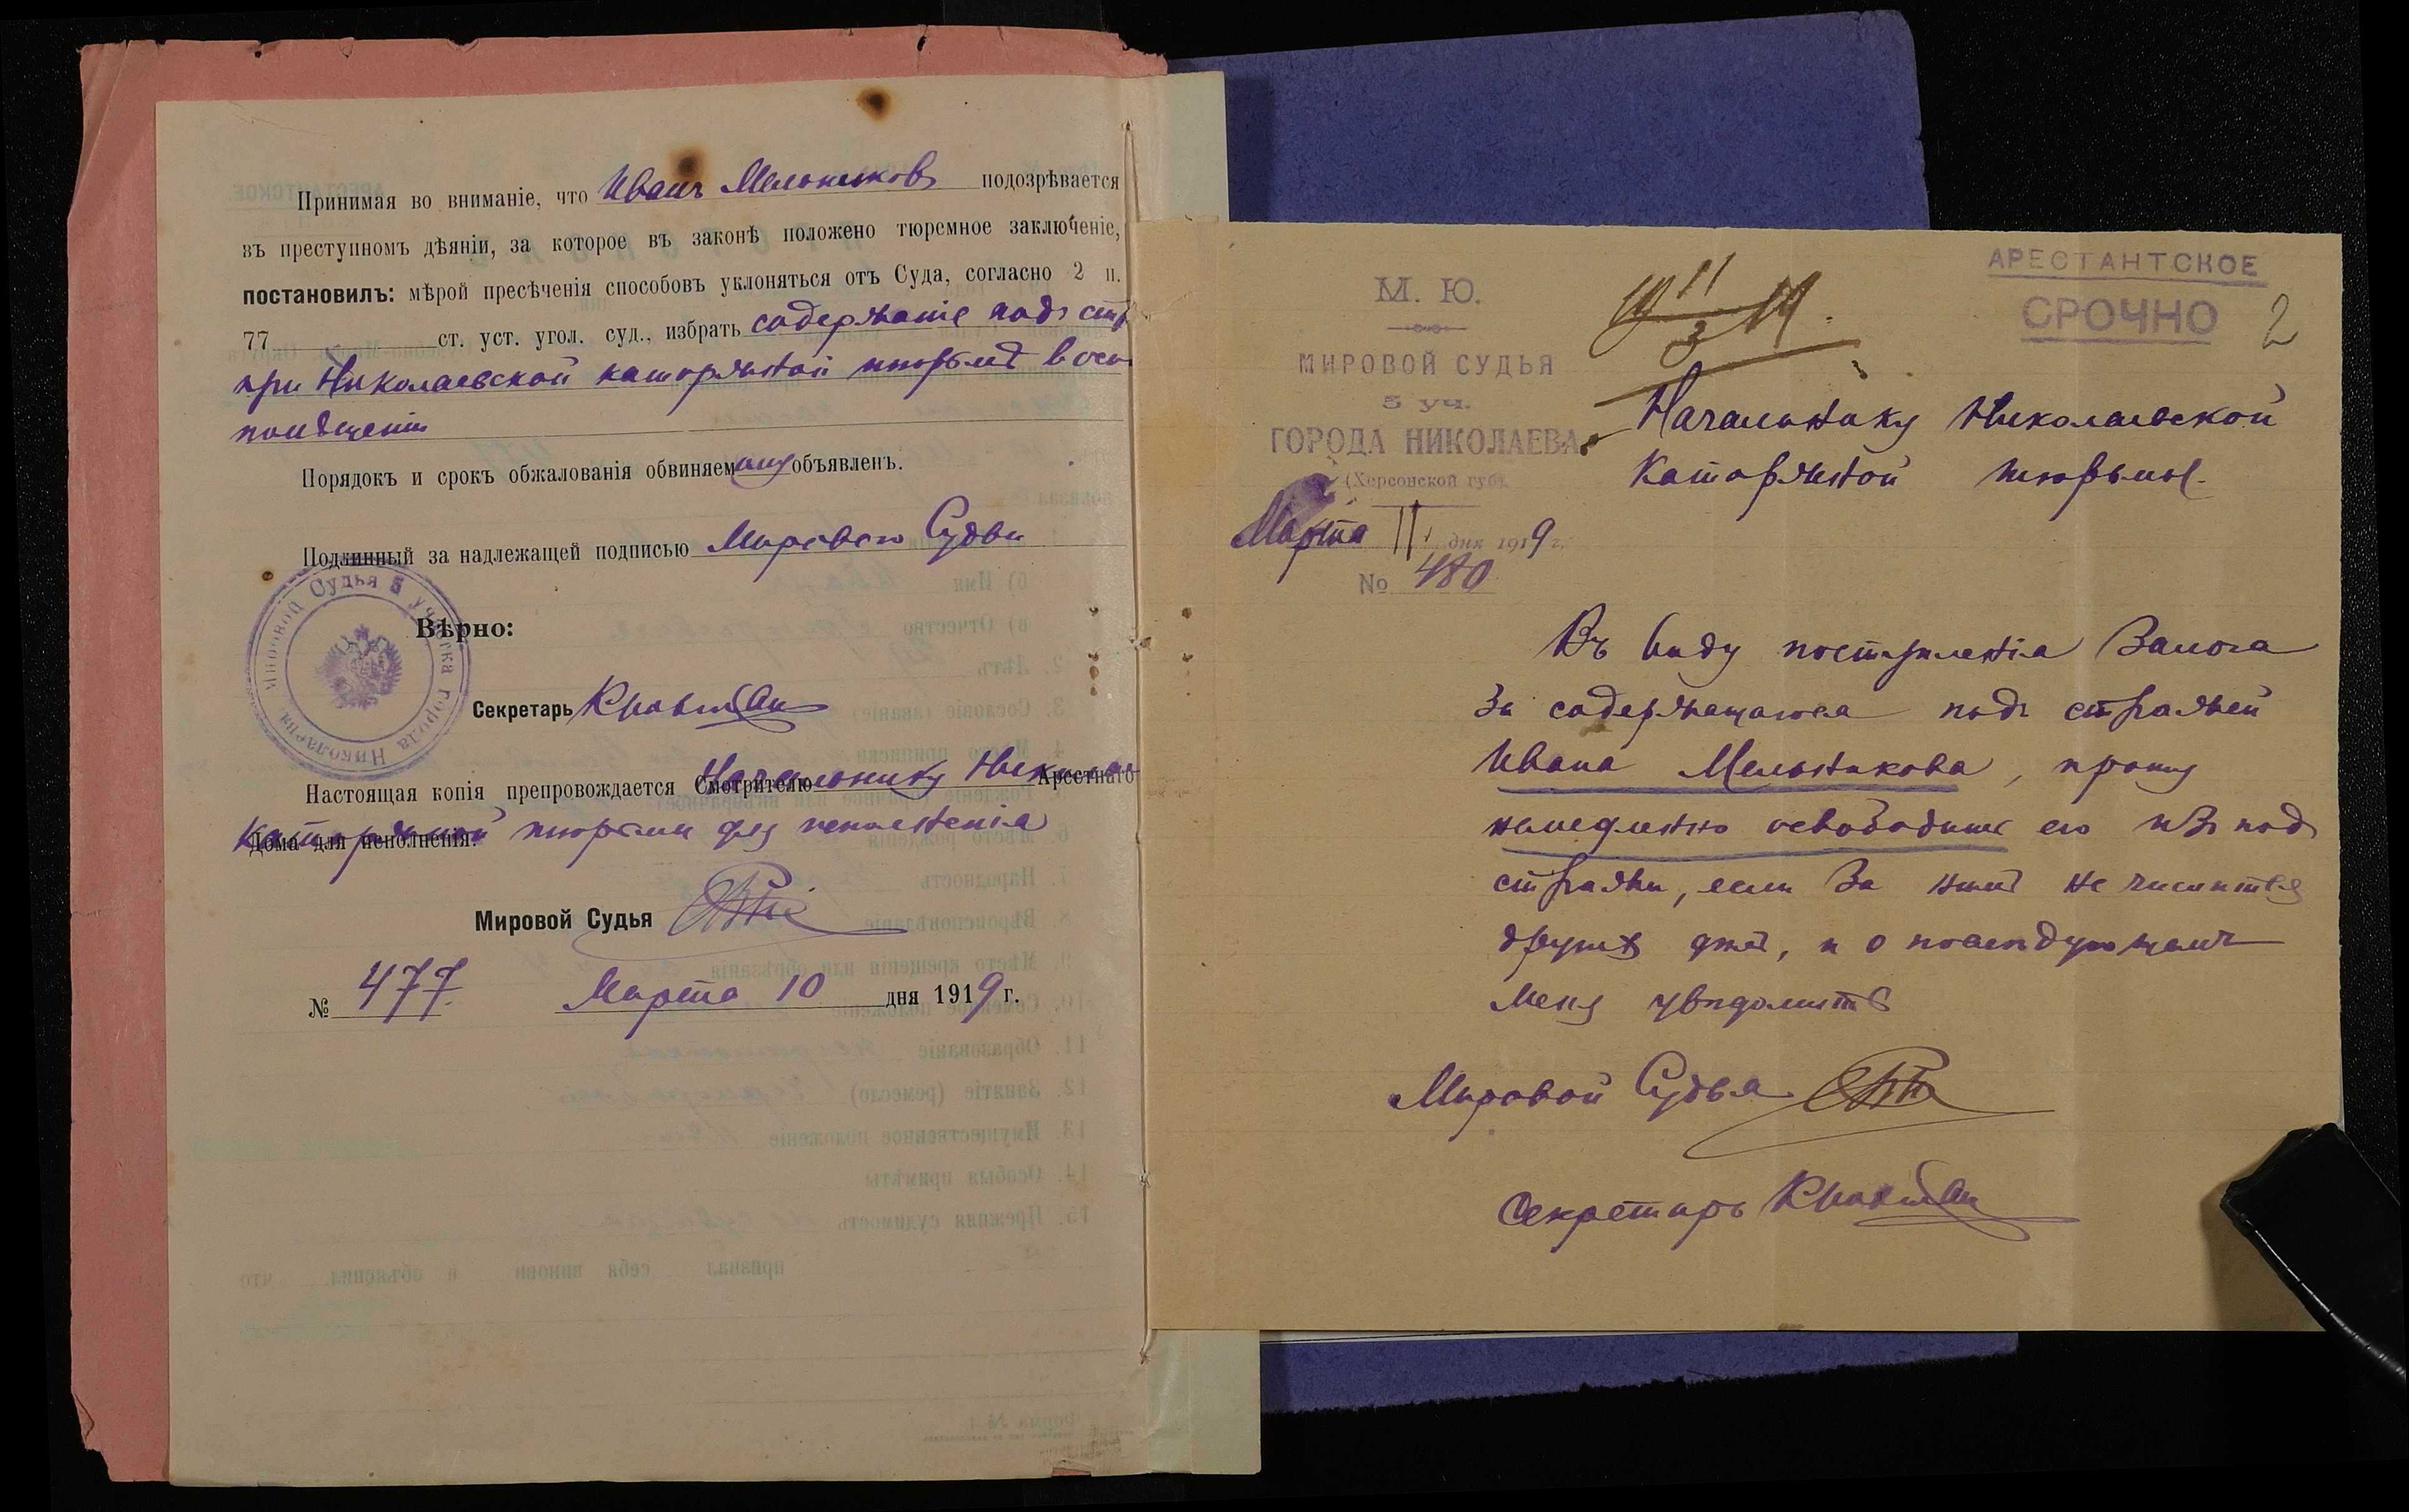 Принимая во вниманіе, что Иванъ Мельников подозрѣвается
въ преступномъ дѣяніи, за которое въ законѣ положено тюремное заключеніе,
постановилъ: мѣрой пресѣченія способовъ уклоняться отъ Суда, согласно 2 п.
77 ст. уст. угол. суд., избрать содержаніе подъ стр
при Николаевской каторжной тюрьмѣ в
помѣщеніи
Порядокъ и срокъ обжалованія обвиняемому объявленъ.
Подлинный за надлежащей подписью Мирового Судьи
Мировой Судья 5 участка города Николаева
Вѣрно:
Секретарь
Настоящая копія препровождается Смотрителю Начальнику Николаев Арестнаго
Дома для исполненія. Каторжной тюрьмы для исполненія
Мировой Судья
№ 477 Марта 10 дня 1919 г.
АРЕСТАНТСКОЕ
СРОЧНО
2
М. Ю.
МИРОВОЙ СУДЬЯ
5 уч.
ГОРОДА НИКОЛАЕВА
(Херсонской губ.)
Марта 11 дня 1919 г.
№ 480
11
3 19.
Начальнику Николаевской
Каторжной тюрьмы.
Въ виду поступленія Залога
За содержащагося подъ стражей
Ивана Мельникова, прошу
немедленно освободить его изъ под
стражи, если За нимъ не числится
других дѣлъ, и о послѣдующемъ
меня увѣдомить
Мировой Судья
Секретарь